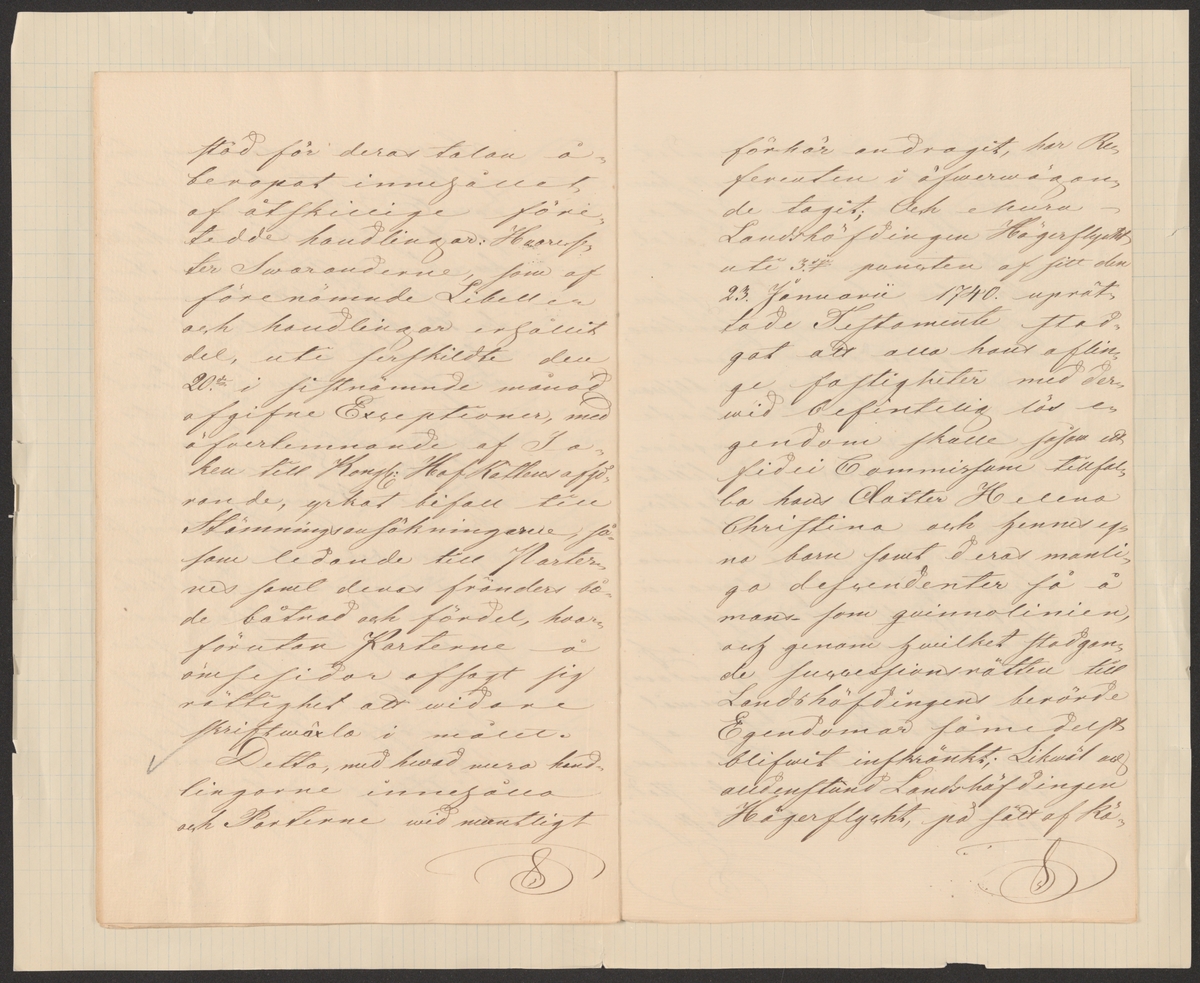 stöd för deras talan å-
beropat innehållet
af åtskillige före-
tedde handlingar: Hvaref-
ter Swaranderne, som af
förenämnde Libeller
och handlingar erhållit
del, uti serskildte den
20:de i sistnämnde månad
afgifne Exceptioner, med
öfverlemnande af Sa-
ken till Kongl: HofRättens afgö-
rande, yrkat bifall till
Stämningsansökningarne, så-
som ledande till Parter-
nes samt deras fränders bå-
de båtnad och fördel, hvar-
förutan Parterne å
ömsesidor afsagt sig
rättighet att widare
skriftwäxla i målet.
Detta, med hwad mera hand-
lingarne innehålla
och Parterne wid muntligt
förhör andragit, har Re-
ferenten i öfwerwägan-
de tagit; Och ehuru
Landshöfdingen Hägerflycht
uti 3:dje puncten af sitt den
23. Januarii 1740. uprät-
tade Testamente stad-
gat att alla hans aflin-
ge fastigheter med der-
wid befintelig lös e-
gendom skulle såsom ett
fidei Commissum tillfal-
la hans Dotter Helena
Christina och hennes eg-
na barn samt deras manli-
ga descendenter så å
mans som qvinnolinien,
och genom hwilket stadgan-
de successionsrätten till
Landshöfdingens berörde
Egendomar såmedelst
blifwit inskränkt; Likwäl och
alldenstund Landshöfdingen
Hägerflycht, på sätt af Kö-